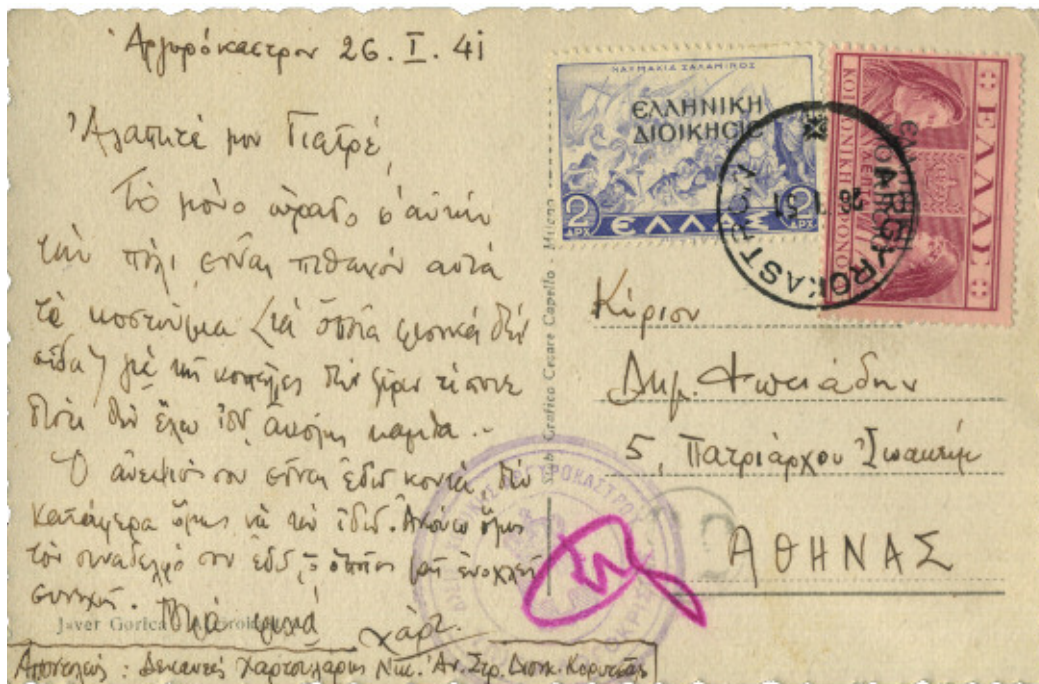 Ἀργυρόκαστρον 26. I. 41
Ἀγαπητέ μου Γιατρέ,
Τὸ μόνο ὡραῖο σ' αὐτὴν
τὴν πόλι εἶναι πιθανὸν αὐτὰ
τὰ κοστούμια (τὰ ὁποῖα φυσικὰ δὲν
εἶδα) γιὰ τὶς κοπέλλες δὲν ξέρω τίποτε
διότι δὲν ἔχω ἰδῆ ἀκόμη καμμιὰ..
Ὁ ἀνεψιός σου εἶναι ἐδῶ κοντά, δὲν
κατάφερα ὅμως νὰ τὸν ἰδῶ. Ἀκούω ὅμως
τὸν συνάδελφό σου ἐδῶ, ὁ ὁποῖος μᾶς ἐνοχλεῖ
συνεχῶς. Πολλὰ φιλιὰ
Χαρτ.
Javer Gorica
Ἀποστολεύς: Δεκανεὺς Χαρτουλάρης Νικ. Ἀν. Στρ. Διοικ. Κορυτσᾶς
Stab. Grafico Cesare Capello - Milano
ΝΑΥΜΑΧΙΑ ΣΑΛΑΜΙΝΟΣ
ΕΛΛΗΝΙΚΗ
ΔΙΟΙΚΗCΙC
2 ΔΡΧ ΕΛΛΑΣ 2 ΔΡΧ
ΕΛΛΑΣ
ΚΟΙΝΩΝΙΚΗ ΠΡΟΝΟΙΑ
ΛΕΠΤ
ARGYROKASTRON
26 I
Κύριον
Δημ. Φωτιάδην
5, Πατριάρχου Ἰωακείμ
ΑΘΗΝΑΣ